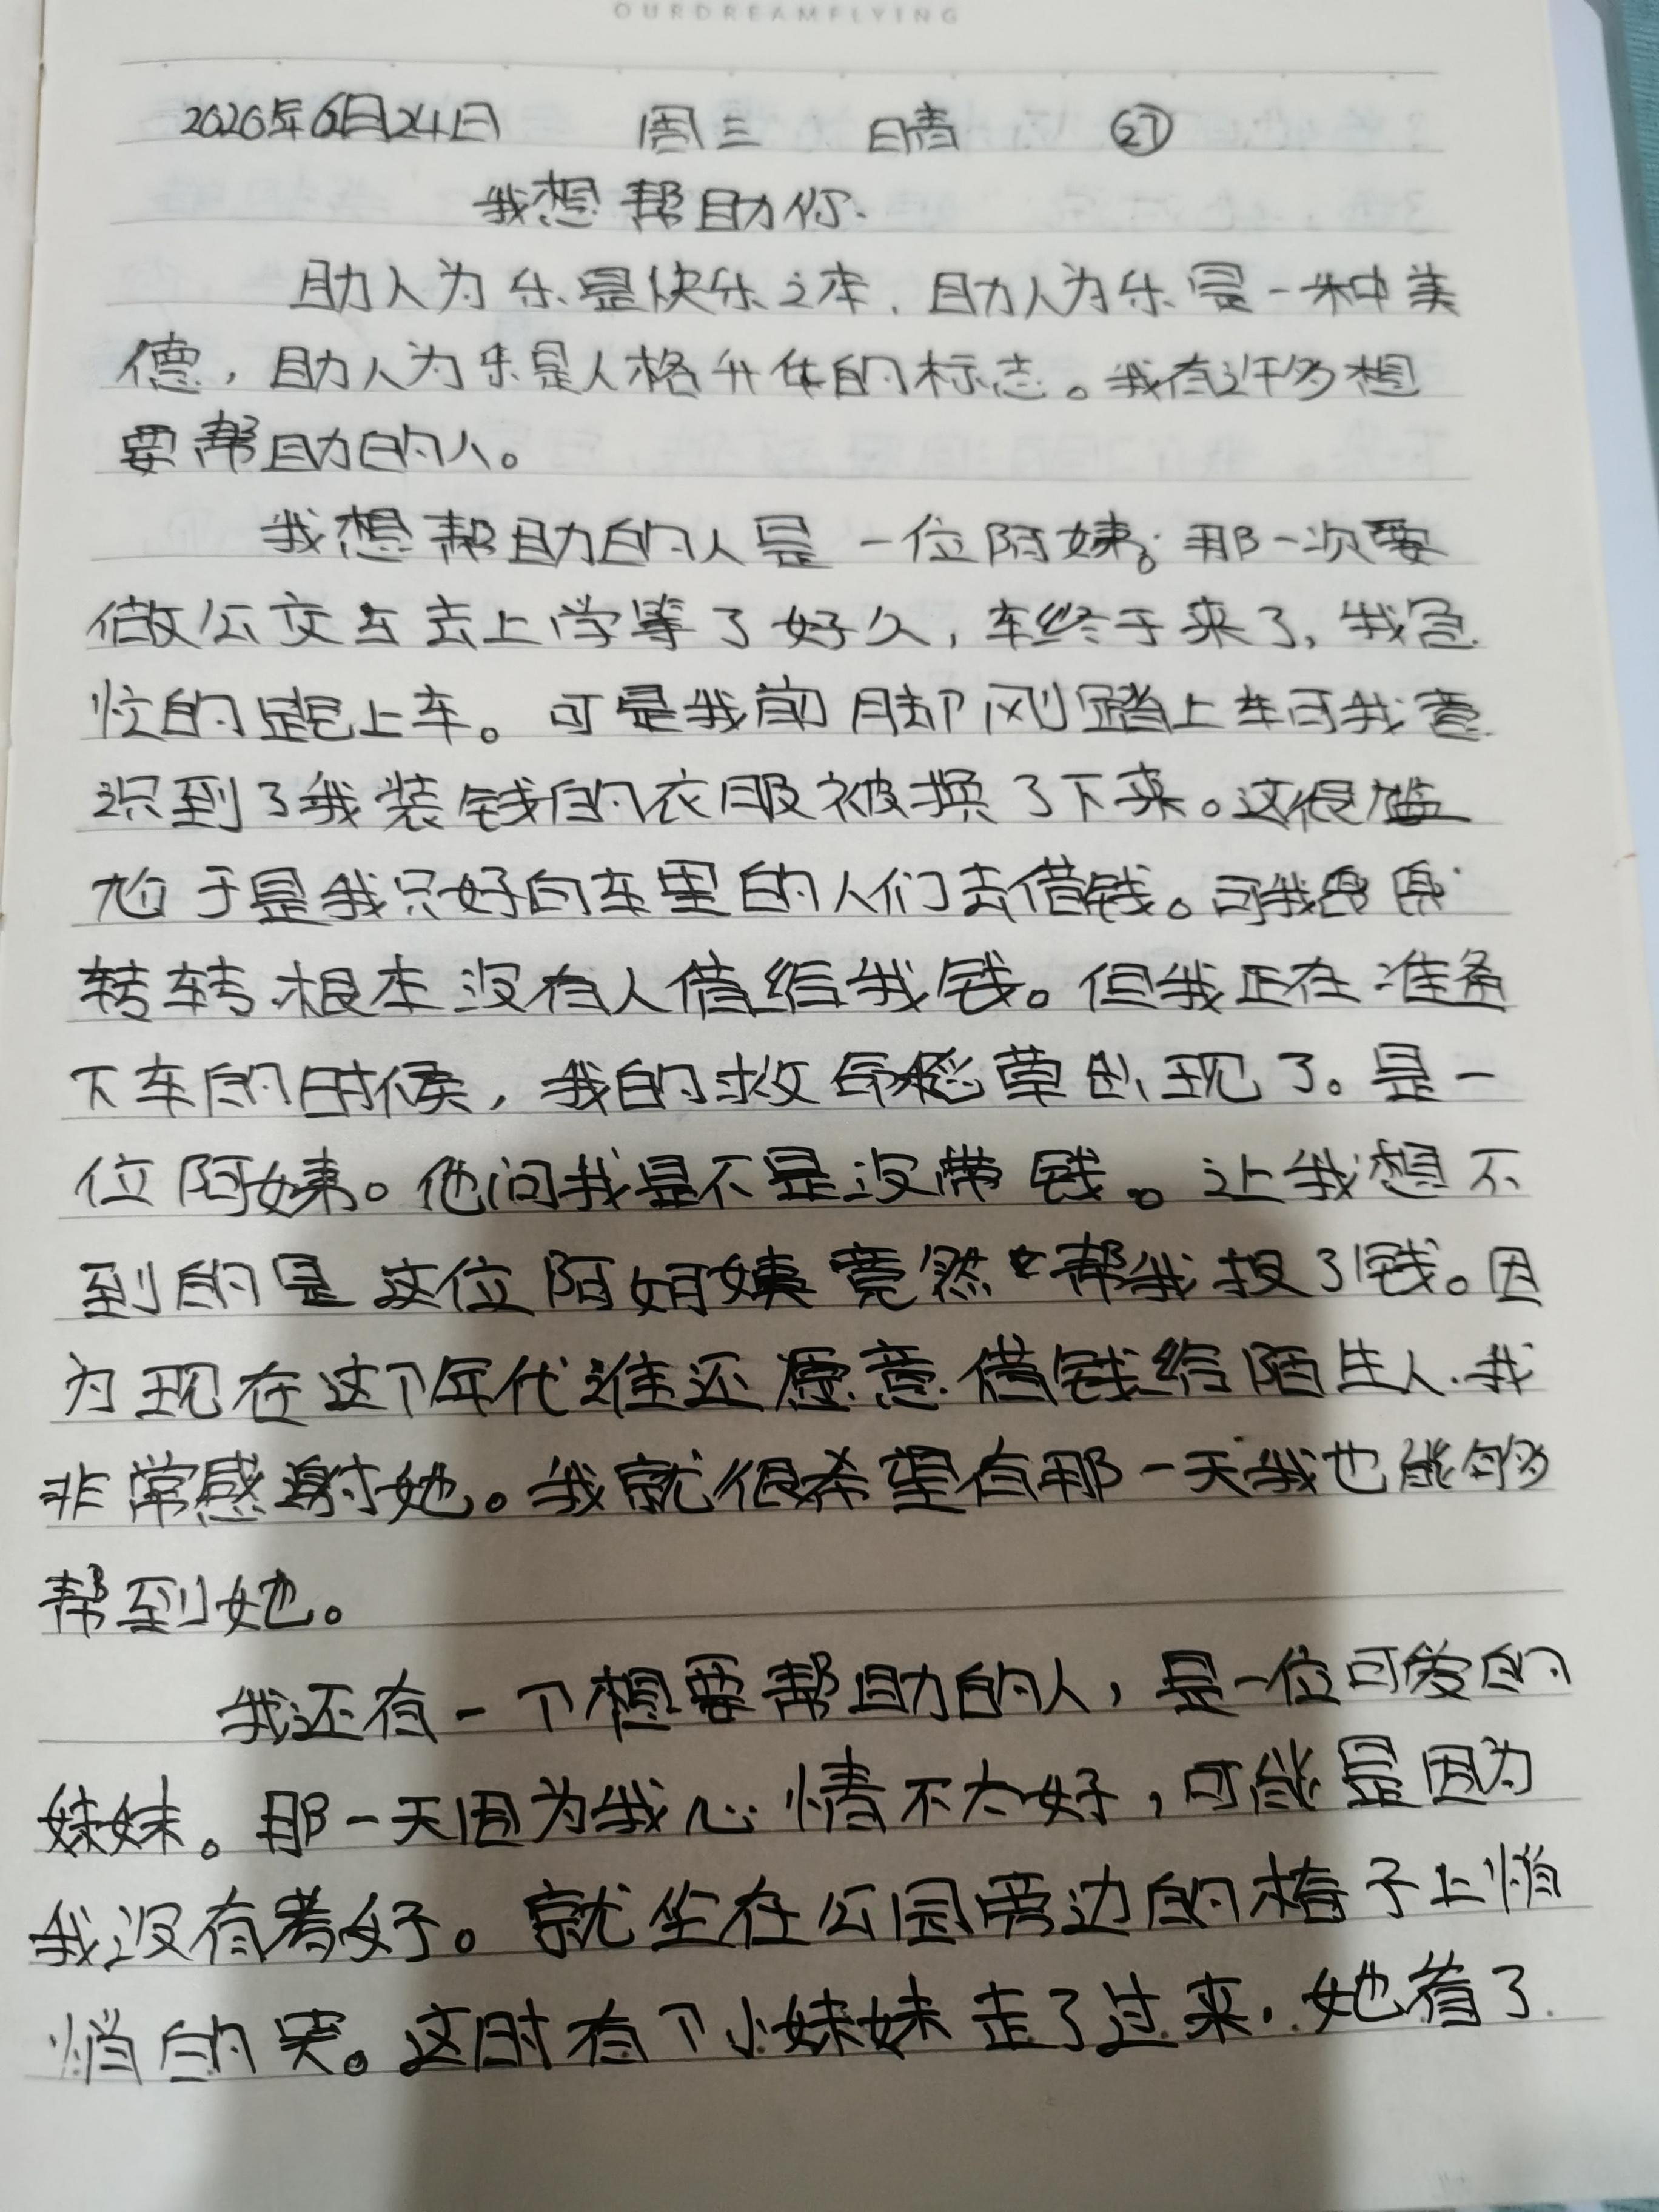 OURDREAMFLYING
2020年6月24日 周三 晴 ㉗
我想帮助你.
助人为乐是快乐之本，助人为乐是一种美
德，助人为乐是人格升华的标志。我有许多想
要帮助的人。
我想帮助的人是一位阿姨。那一次要
做公交车去上学等了好久，车终于来了，我急
忙的跑上车。可是我前脚刚踏上车可我意
识到了我装钱的衣服被换了下来。这很尴
尬于是我只好向车里的人们去借钱。可我
转转根本没有人借给我钱。但我正在准备
下车的时候，我的救命稻草出现了。是一
位阿姨。他问我是不是没带钱。让我想不
到的是这位阿姨竟然帮我投了钱。因
为现在这个年代谁还愿意借钱给陌生人.我
非常感谢她。我就很希望有那一天我也能够
帮到她。
我还有一个想要帮助的人，是一位可爱的
妹妹。那一天因为我心情不太好，可能是因为
我没有考好。就坐在公园旁边的椅子上悄
悄的哭。这时有个小妹妹走了过来，她看了